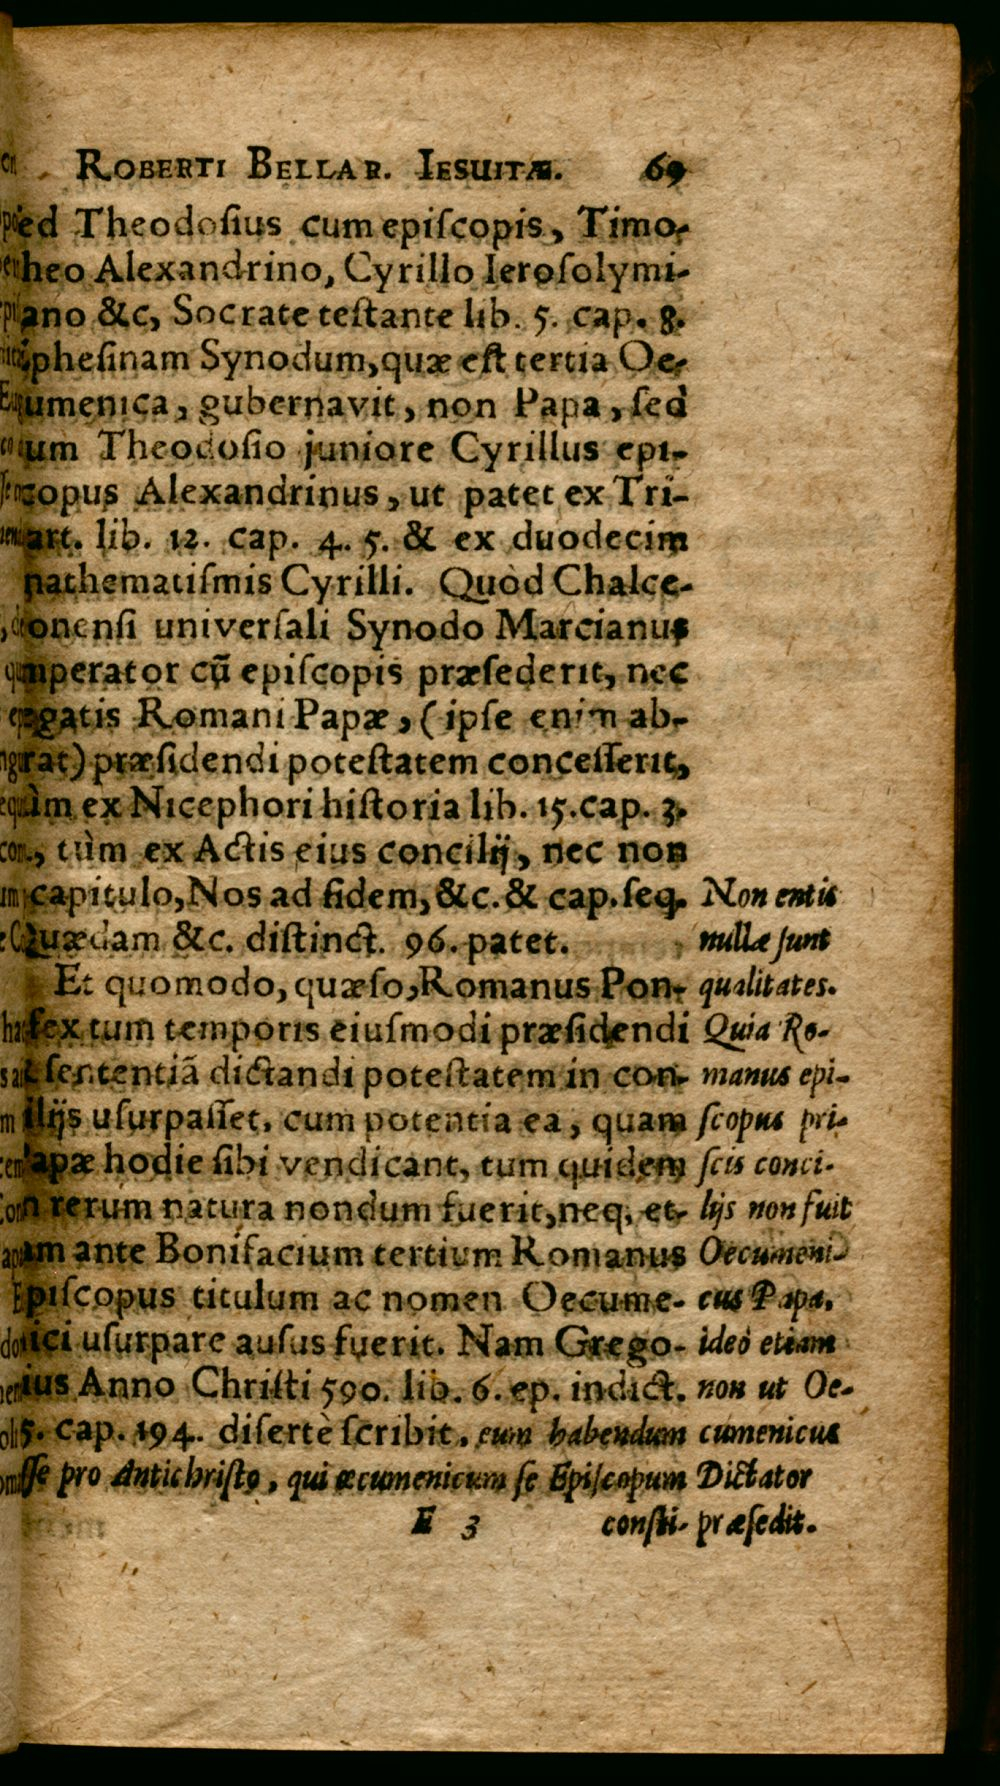 ROBERTI BELLAR. IESUITÆ. 69
ed Theodoſius cum epiſcopis, Timo-
heo Alexandrino, Cyrillo Ieroſolymi-
ano &c, Socrate teſtante lib. 5. cap. 8.
pheſinam Synodum, quæ eſt tertia Oe-
umenica, gubernavit, non Papa, ſed
um Theodoſio juniore Cyrillus epi-
copus Alexandrinus, ut patet ex Tri-
art. lib. 12. cap. 4. 5. & ex duodecim
nathematiſmis Cyrilli. Quòd Chalce-
onenſi univerſali Synodo Marcianus
mperator cū epiſcopis præſederit, nec
egatis Romani Papæ, (ipſe enim ab-
rat) præſidendi poteſtatem conceſſerit,
ùm ex Nicephori hiſtoria lib. 15. cap. 3.
., tùm ex Actis eius concilij, nec non
capitulo, Nos ad fidem, &c. & cap. ſeq.
Quædam &c. diſtinct. 96. patet.
Et quomodo, quæſo, Romanus Pon-
fex tum temporis eiuſmodi præſidendi
& ſententiā dictandi poteſtatem in con-
ilijs uſurpaſſet, cum potentia ea, quam
apæ hodie ſibi vendicant, tum quidem
n rerum natura nondum fuerit, neq, et-
am ante Bonifacium tertium Romanus
Epiſcopus titulum ac nomen Oecume-
ici uſurpare auſus fuerit. Nam Grego-
ius Anno Chriſti 590. lib. 6. ep. indict.
5. cap. 194. diſertè ſcribit, eum habendum
ſſe pro Antichriſto, qui œcumenicum ſe Epiſcopum
E 3 conſti-
Non entis
nullæ ſunt
qualitates.
Quia Ro-
manus epi-
ſcopus pri-
ſcis conci-
lijs non fuit
Oecumeni-
cus Papa,
ideò etiam
non ut Oe-
cumenicus
Dictator
præſedit.